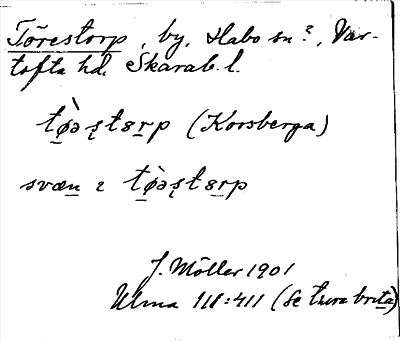 Törestorp, by, Habo sn?, Var-
tofta hd. Skarab. l.
tø̀ə̣ṣtɞrp (Korsberga)
svæn ı tø̀ə̣ṣtɞrp
J. Möller 1901
Ulma 111:411 (se tura brita)